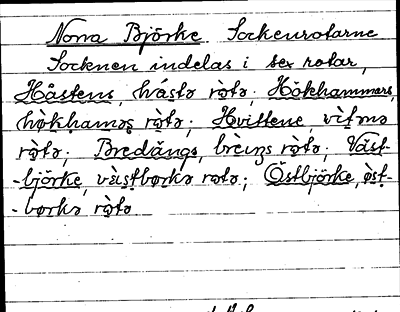 Norra Björke Sockenrotarne
Socknen indelas i sex rotar,
Håstens, hǻstə rὼtə; Hökhammars,
hökhaməʂ rὼtə; Hvittene, vìtnə
rὼtə; Bredängs, brèiŋs rὼtə; Väst-
-björke, vὰistbørkə rὼtə; Östbjörke, øst-
-børkə rὼtə